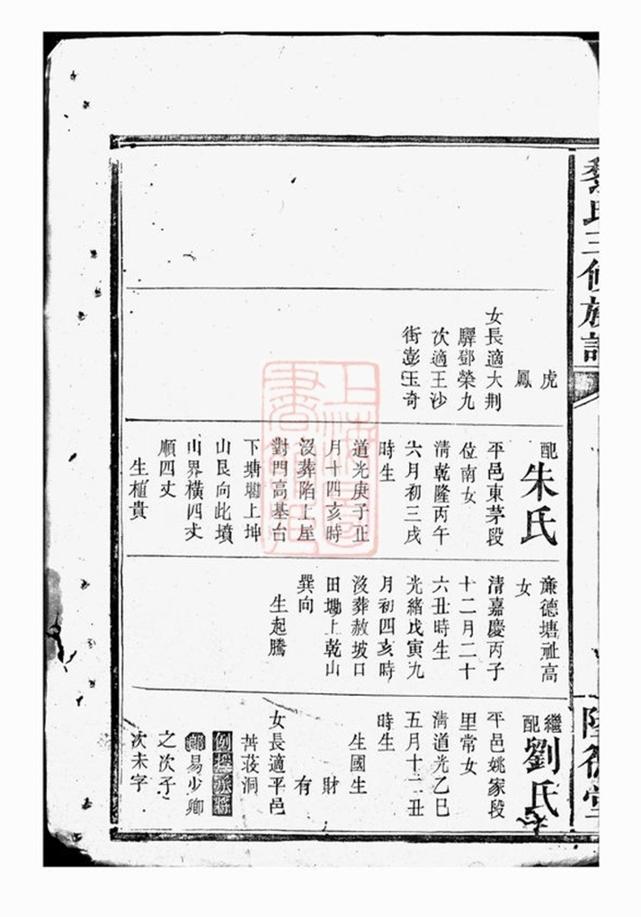 氏三修族譜
虎
鳳
女長適大荆
驛鄧榮九
次適王沙
街彭玉奇
配朱氏
平邑東茅段
位南女
淸乾隆丙午
六月初三戌
時生
道光庚子正
月十四亥時
沒葬陷上屋
對門高基台
下塘墈上坤
山艮向此墳
山界橫四丈
順四丈
生植貴
亷德塘祉高
女
淸嘉慶丙子
十二月二十
六丑時生
光緒戊寅九
月初四亥時
沒葬赦坡口
田墈上乾山
巽向
生起騰
繼配劉氏
平邑姚家段
里常女
淸道光乙巳
五月十二丑
時生
生國生
財
有
女長適平邑
易少卿
之次子
次未字
上海圖書館藏